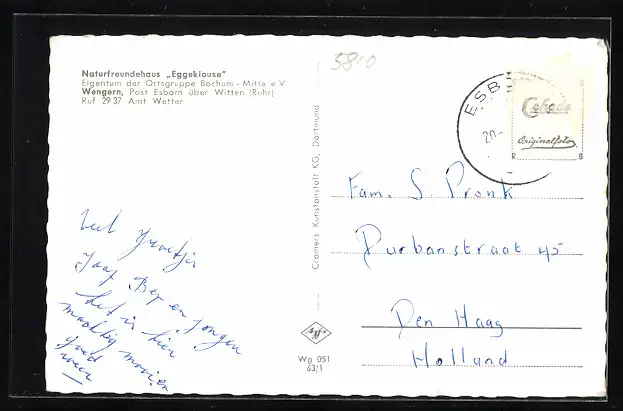 Naturfreundehaus „Eggeklause"
Eigentum der Ortsgruppe Bochum - Mitte e.V.
Wengern, Post Esborn über Witten (Ruhr)
Ruf 29 37 Amt Wetter
5810
ESB
20.-
Cekade
Originalfoto
R B
Cramers Kunstanstalt KG, Dortmund
Fam. S. Pronk
Durbanstraat 45
Den Haag
Holland
Veel groetjes
Jaap Bep en jongen
het is hier
machtig mooi en
goed
weer
Agfa
Wg 051
63/1